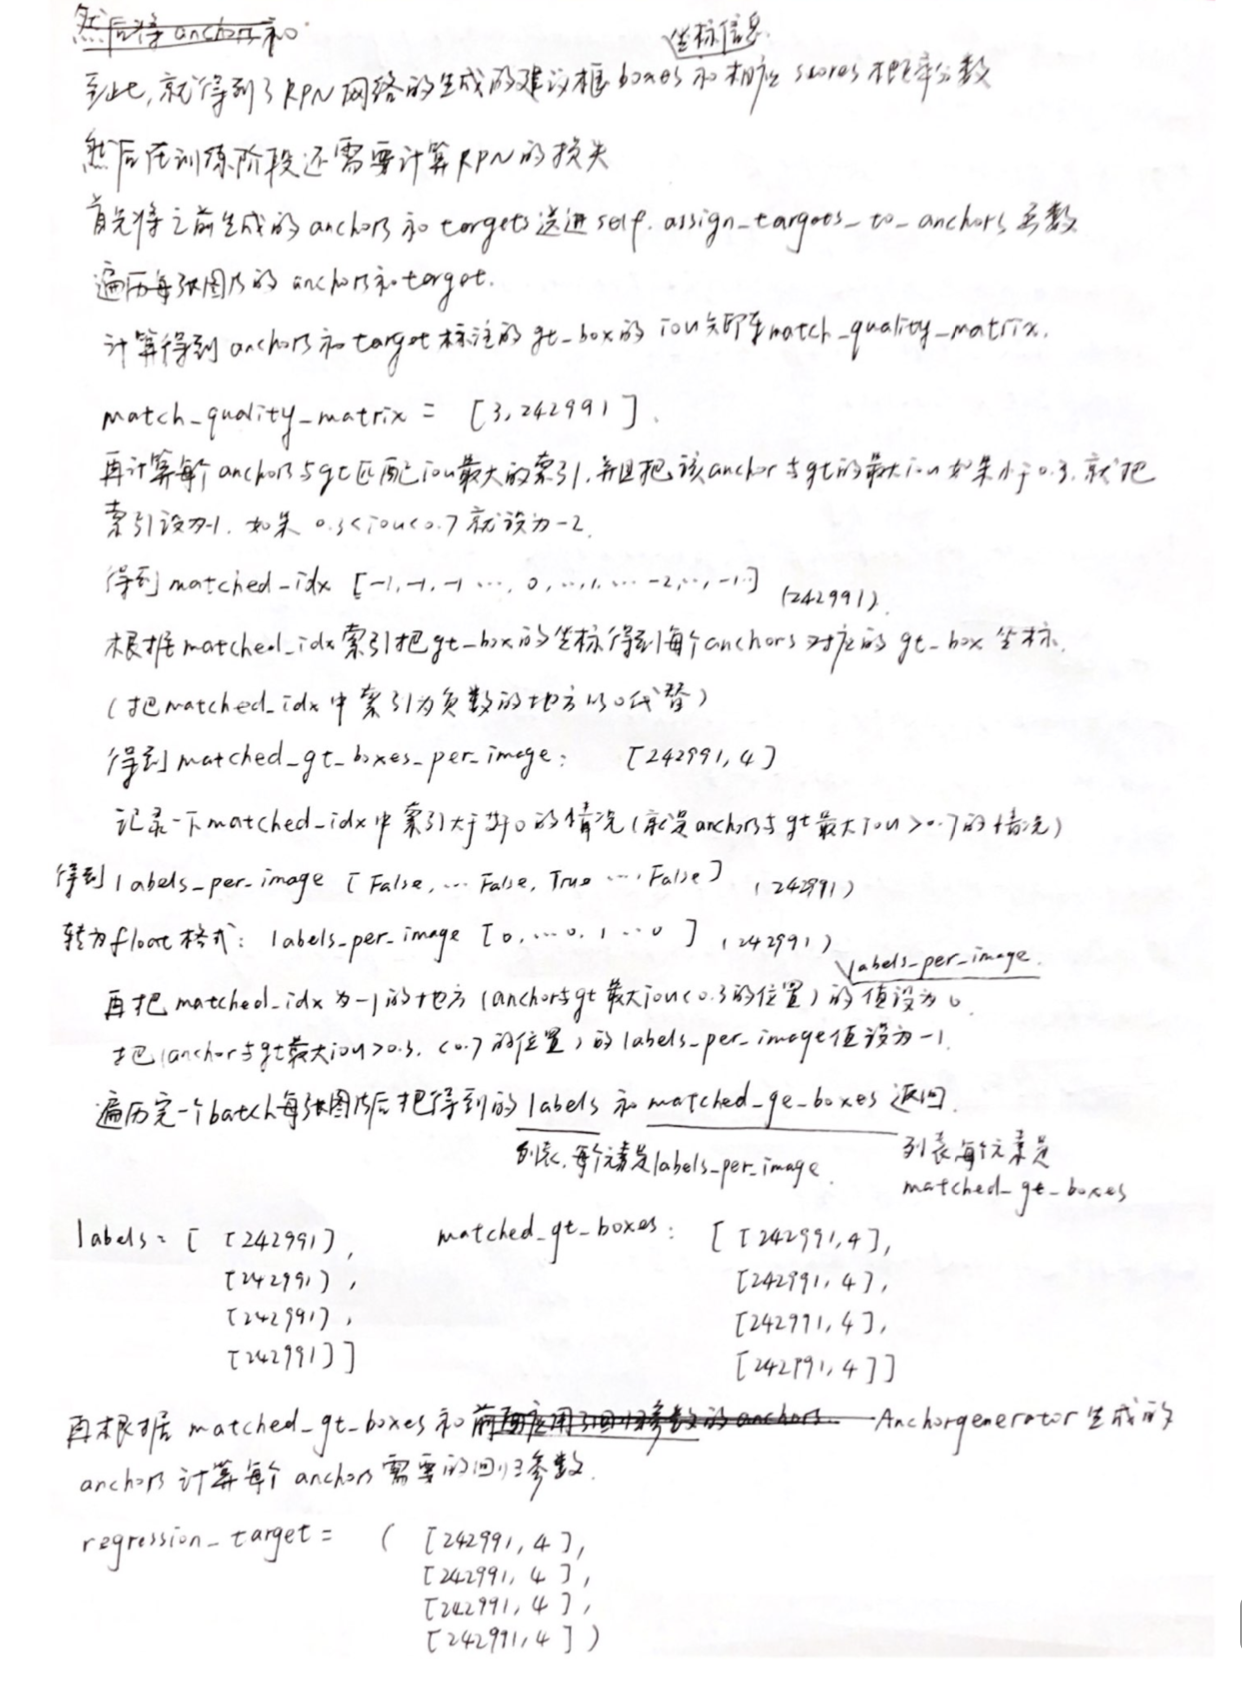 然后将 anchors 和
坐标信息
到此,就得到了RPN网络的生成的建议框boxes和相应scores概率分数
然后在训练阶段还需要计算RPN的损失
首先将之前生成的anchors和targets送进self.assign_targets_to_anchors函数
遍历每张图片的anchors和target.
计算得到anchors和target标注的gt_box的iou矩阵match_quality_matrix.
match_quality_matrix = [3,242991].
再计算每个anchors与gt匹配iou最大的索引,并且把该anchor与gt的最大iou如果小于0.3,就把
索引设为-1. 如果 0.3<iou<0.7就设为-2.
得到matched_idx [-1,-1,-1 ..., 0, ...,1, ... -2,..., -1.] (242991).
根据matched_idx索引把gt_box的坐标得到每个anchors对应的gt_box坐标.
(把matched_idx中索引为负数的地方以0代替)
得到matched_gt_boxes_per_image: [242991,4]
记录一下matched_idx中索引大于等于0的情况(就是anchors与gt最大iou>0.7的情况)
得到labels_per_image [False, ... False, True ..., False] (242991)
转为float格式: labels_per_image [0, ... 0, 1 ... 0 ] (242991)
labels_per_image.
再把matched_idx为-1的地方(anchor与gt最大iou<0.3的位置)的值设为0
把(anchor与gt最大iou>0.3. <0.7的位置)的labels_per_image值设为-1.
遍历完一个batch每张图片后把得到的labels和matched_ge_boxes返回.
列表,每个元素是labels_per_image.
列表每个元素是
matched_gt_boxes
labels = [ [242991], matched_gt_boxes: [ [242991,4],
[242991], [242991,4],
[242991], [242991,4],
[242991]] [242991,4]]
再根据matched_gt_boxes和前面应用了回归参数的anchors Anchorgenerator生成的
anchors计算每个anchors需要的回归参数.
regression_target = ( [242991,4],
[242991,4],
[242991,4],
[242991,4])